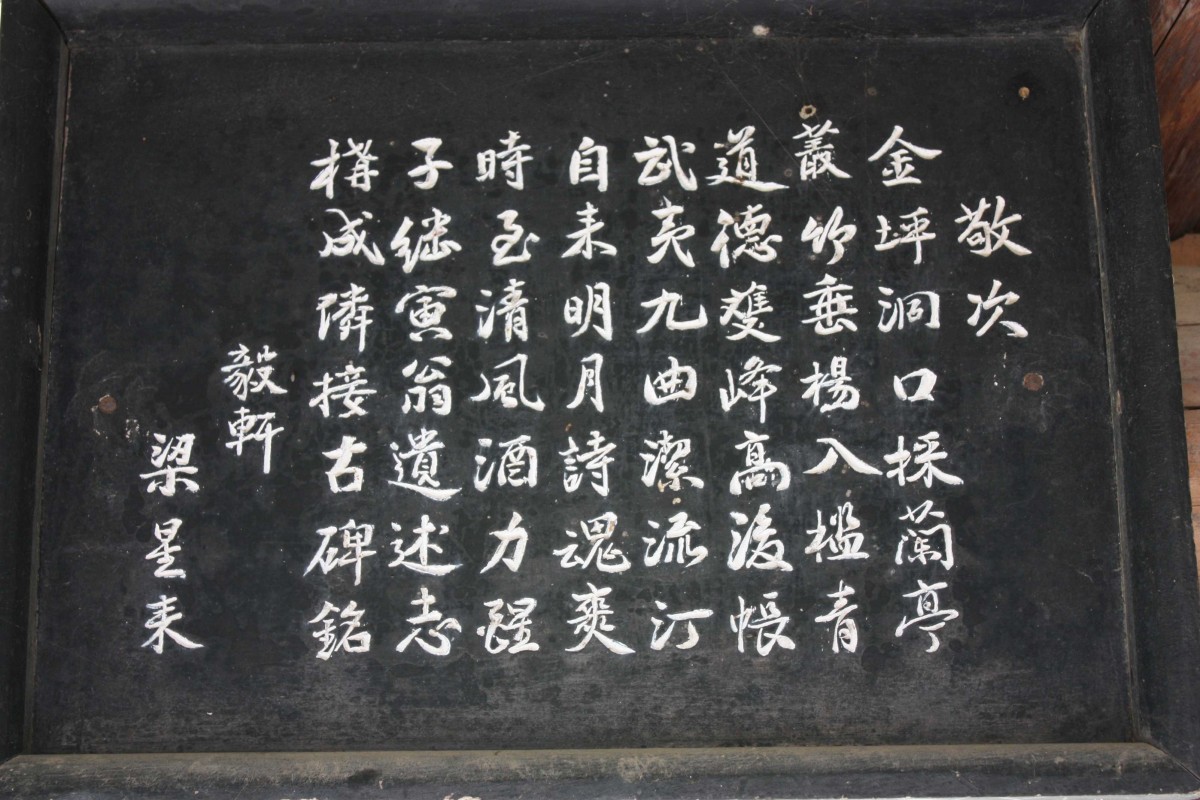 敬次
金坪洞口採蘭亭
叢竹垂楊入檻青
道德雙峰高後帳
武夷九曲潔流汀
自来明月詩魂爽
時至清風酒力醒
子継寅翁遺述志
構成隣接古碑銘
毅軒
梁星来